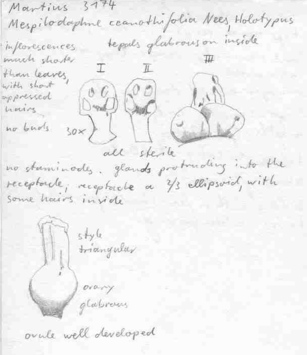 Martius 3174
Mespilodaphne ceanothifolia Nees, Holotypus
inflorescences
much shorter
than leaves,
with short
appressed
hairs.
no buds
tepals glabrous on inside
I II III
30x
all sterile
no staminodes. glands protruding into the
receptacle, receptacle a 2/3 ellipsoid, with
some hairs inside
style
triangular
ovary
glabrous
ovule well developed